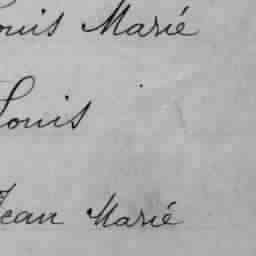 ouis Marié
Louis
Jean Marié